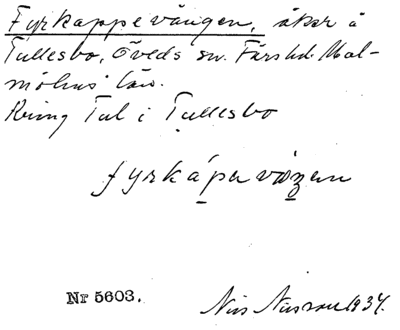 Fyrkappevången, åker å
Tullesbo, Öveds sn. Färs hd. Mal-
möhus län.
Kring Tul i Tullesbo
fyrkápavåzen
Nr 5603.
Nils Nilsson 1934.